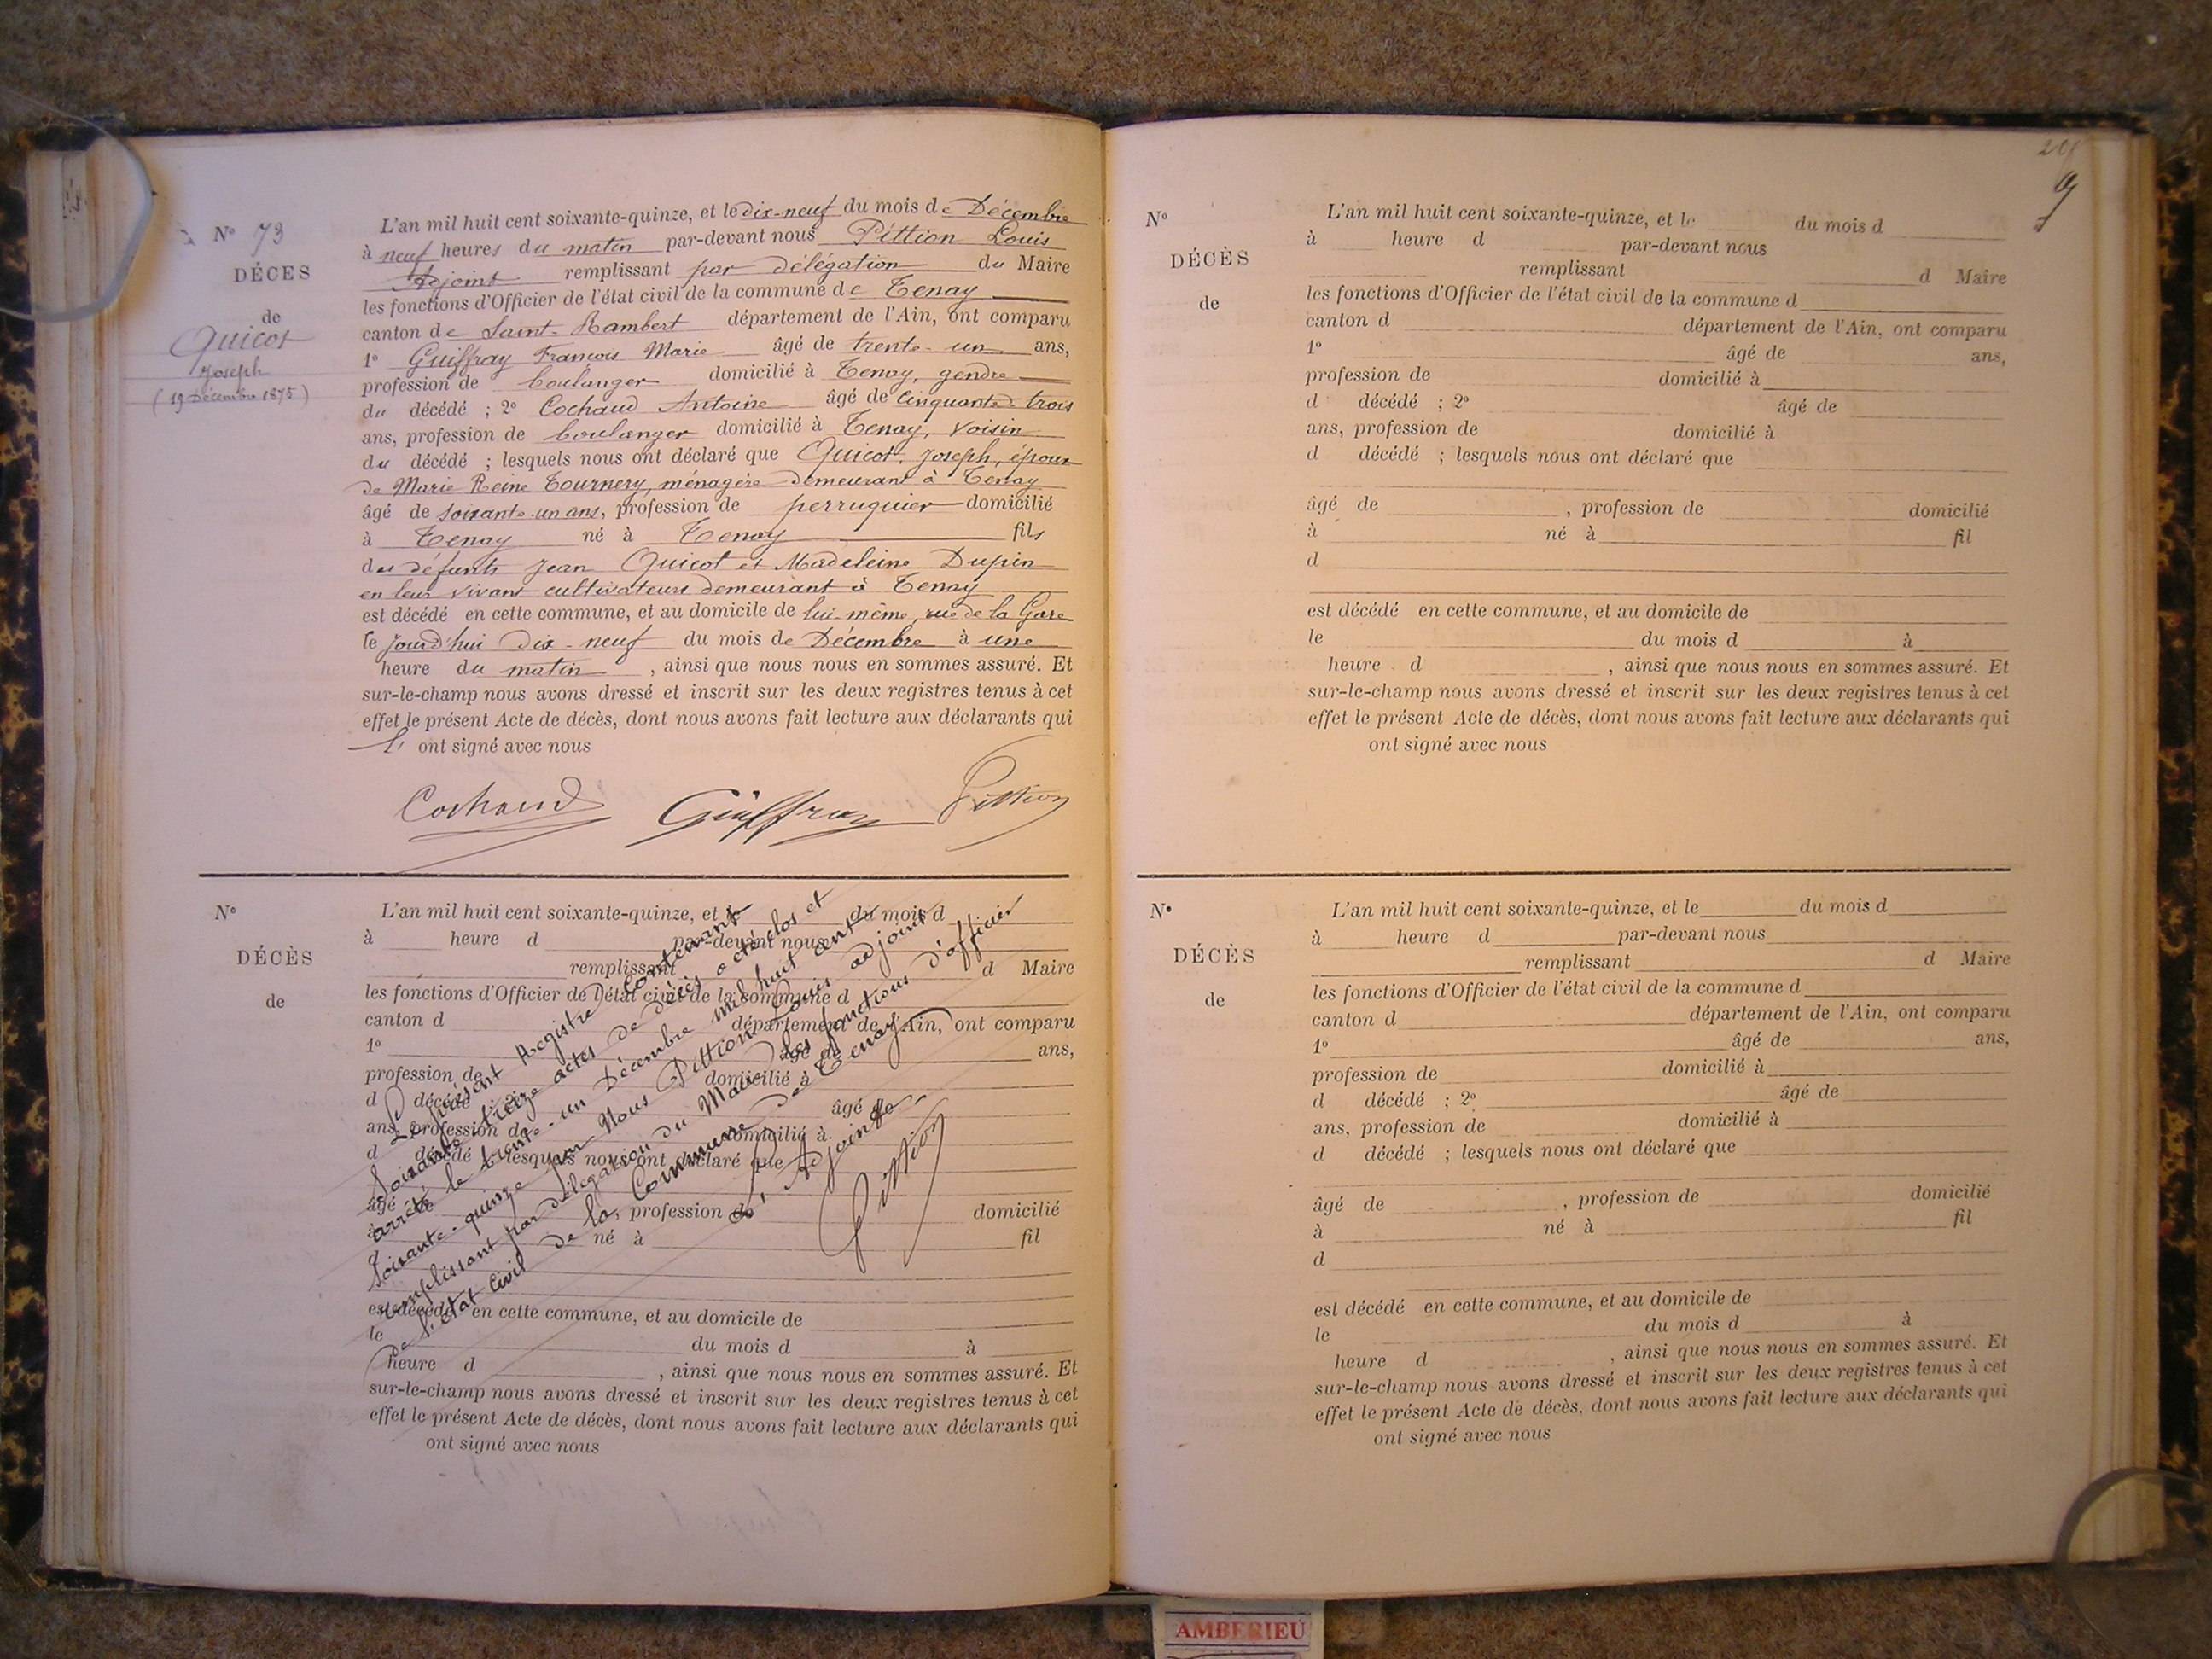 N° 73
DÉCES
de
Quicot
Joseph
(19 Décembre 1875)
L'an mil huit cent soixante-quinze, et le dix-neuf du mois de Décembre
à neuf heures du matin par-devant nous Pittion Louis
Adjoint remplissant par délégation du Maire
les fonctions d'Officier de l'état civil de la commune de Tenay
canton de Saint-Rambert département de l'Ain, ont comparu
1° Guiffray François Marie âgé de trente-un ans,
profession de boulanger domicilié à Tenay, gendre
du décédé ; 2° Cochaud Antoine âgé de cinquante-trois
ans, profession de boulanger domicilié à Tenay, voisin
du décédé ; lesquels nous ont déclaré que Quicot, Joseph, époux
de Marie Reine Tournery, ménagère demeurant à Tenay
âgé de soixante-un ans, profession de perruquier domicilié
à Tenay né à Tenay fils
des défunts Jean Quicot et Madeleine Dupin
en leur vivant cultivateurs demeurant à Tenay
est décédé en cette commune, et au domicile de lui-même, rue de la Gare
le jourd'hui dix-neuf du mois de Décembre à une
heure du matin , ainsi que nous nous en sommes assuré. Et
sur-le-champ nous avons dressé et inscrit sur les deux registres tenus à cet
effet le présent Acte de décès, dont nous avons fait lecture aux déclarants qui
l' ont signé avec nous
Cochaud Guiffray Pittion
N°
DÉCÈS
de
L'an mil huit cent soixante-quinze, et le du mois d
à heure d par-devant nous
remplissant d Maire
les fonctions d'Officier de l'état civil de la commune d
canton d département de l'Ain, ont comparu
1° âgé de ans,
profession de domicilié à
d décédé ; 2° âgé de
ans, profession de domicilié à
d décédé ; lesquels nous ont déclaré que
âgé de , profession de domicilié
à né à fil
d
est décédé en cette commune, et au domicile de
le du mois d à
heure d , ainsi que nous nous en sommes assuré. Et
sur-le-champ nous avons dressé et inscrit sur les deux registres tenus à cet
effet le présent Acte de décès, dont nous avons fait lecture aux déclarants qui
ont signé avec nous
Le présent Registre contenant
soixante-treize actes de décès a été clos et
arrêté le trente-un Décembre mil huit cent
soixante-quinze par Nous Pittion Louis adjoint
remplissant par délégation du Maire les fonctions d'officier
de l'état civil de la Commune de Tenay
L'Adjoint
Pittion
N°
DÉCÈS
de
L'an mil huit cent soixante-quinze, et le du mois d
à heure d par-devant nous
remplissant d Maire
les fonctions d'Officier de l'état civil de la commune d
canton d département de l'Ain, ont comparu
1° âgé de ans,
profession de domicilié à
d décédé ; 2° âgé de
ans, profession de domicilié à
d décédé ; lesquels nous ont déclaré que
âgé de , profession de domicilié
à né à fil
d
est décédé en cette commune, et au domicile de
le du mois d à
heure d , ainsi que nous nous en sommes assuré. Et
sur-le-champ nous avons dressé et inscrit sur les deux registres tenus à cet
effet le présent Acte de décès, dont nous avons fait lecture aux déclarants qui
ont signé avec nous
N°
DÉCÈS
de
L'an mil huit cent soixante-quinze, et le du mois d
à heure d par-devant nous
remplissant d Maire
les fonctions d'Officier de l'état civil de la commune d
canton d département de l'Ain, ont comparu
1° âgé de ans,
profession de domicilié à
d décédé ; 2° âgé de
ans, profession de domicilié à
d décédé ; lesquels nous ont déclaré que
âgé de , profession de domicilié
à né à fil
d
est décédé en cette commune, et au domicile de
le du mois d à
heure d , ainsi que nous nous en sommes assuré. Et
sur-le-champ nous avons dressé et inscrit sur les deux registres tenus à cet
effet le présent Acte de décès, dont nous avons fait lecture aux déclarants qui
ont signé avec nous
AMBERIEU